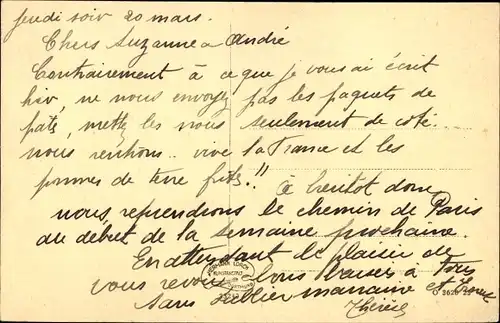 Jeudi soir 20 mars.
Chers Suzanne & André
Contrairement à ce que je vous ai écrit
hier, ne nous envoyez pas les paquets de
pâte, mettez les nous seulement de coté.
nous rentrons.. vive la France et les
pommes de terre frites.!!
à bientot donc
nous reprendrons le chemin de Paris
au début de la semaine prochaine.
En attendant le plaisir de
vous revoir bons baisers à Tous
sans oublier marraine et
Thérèse